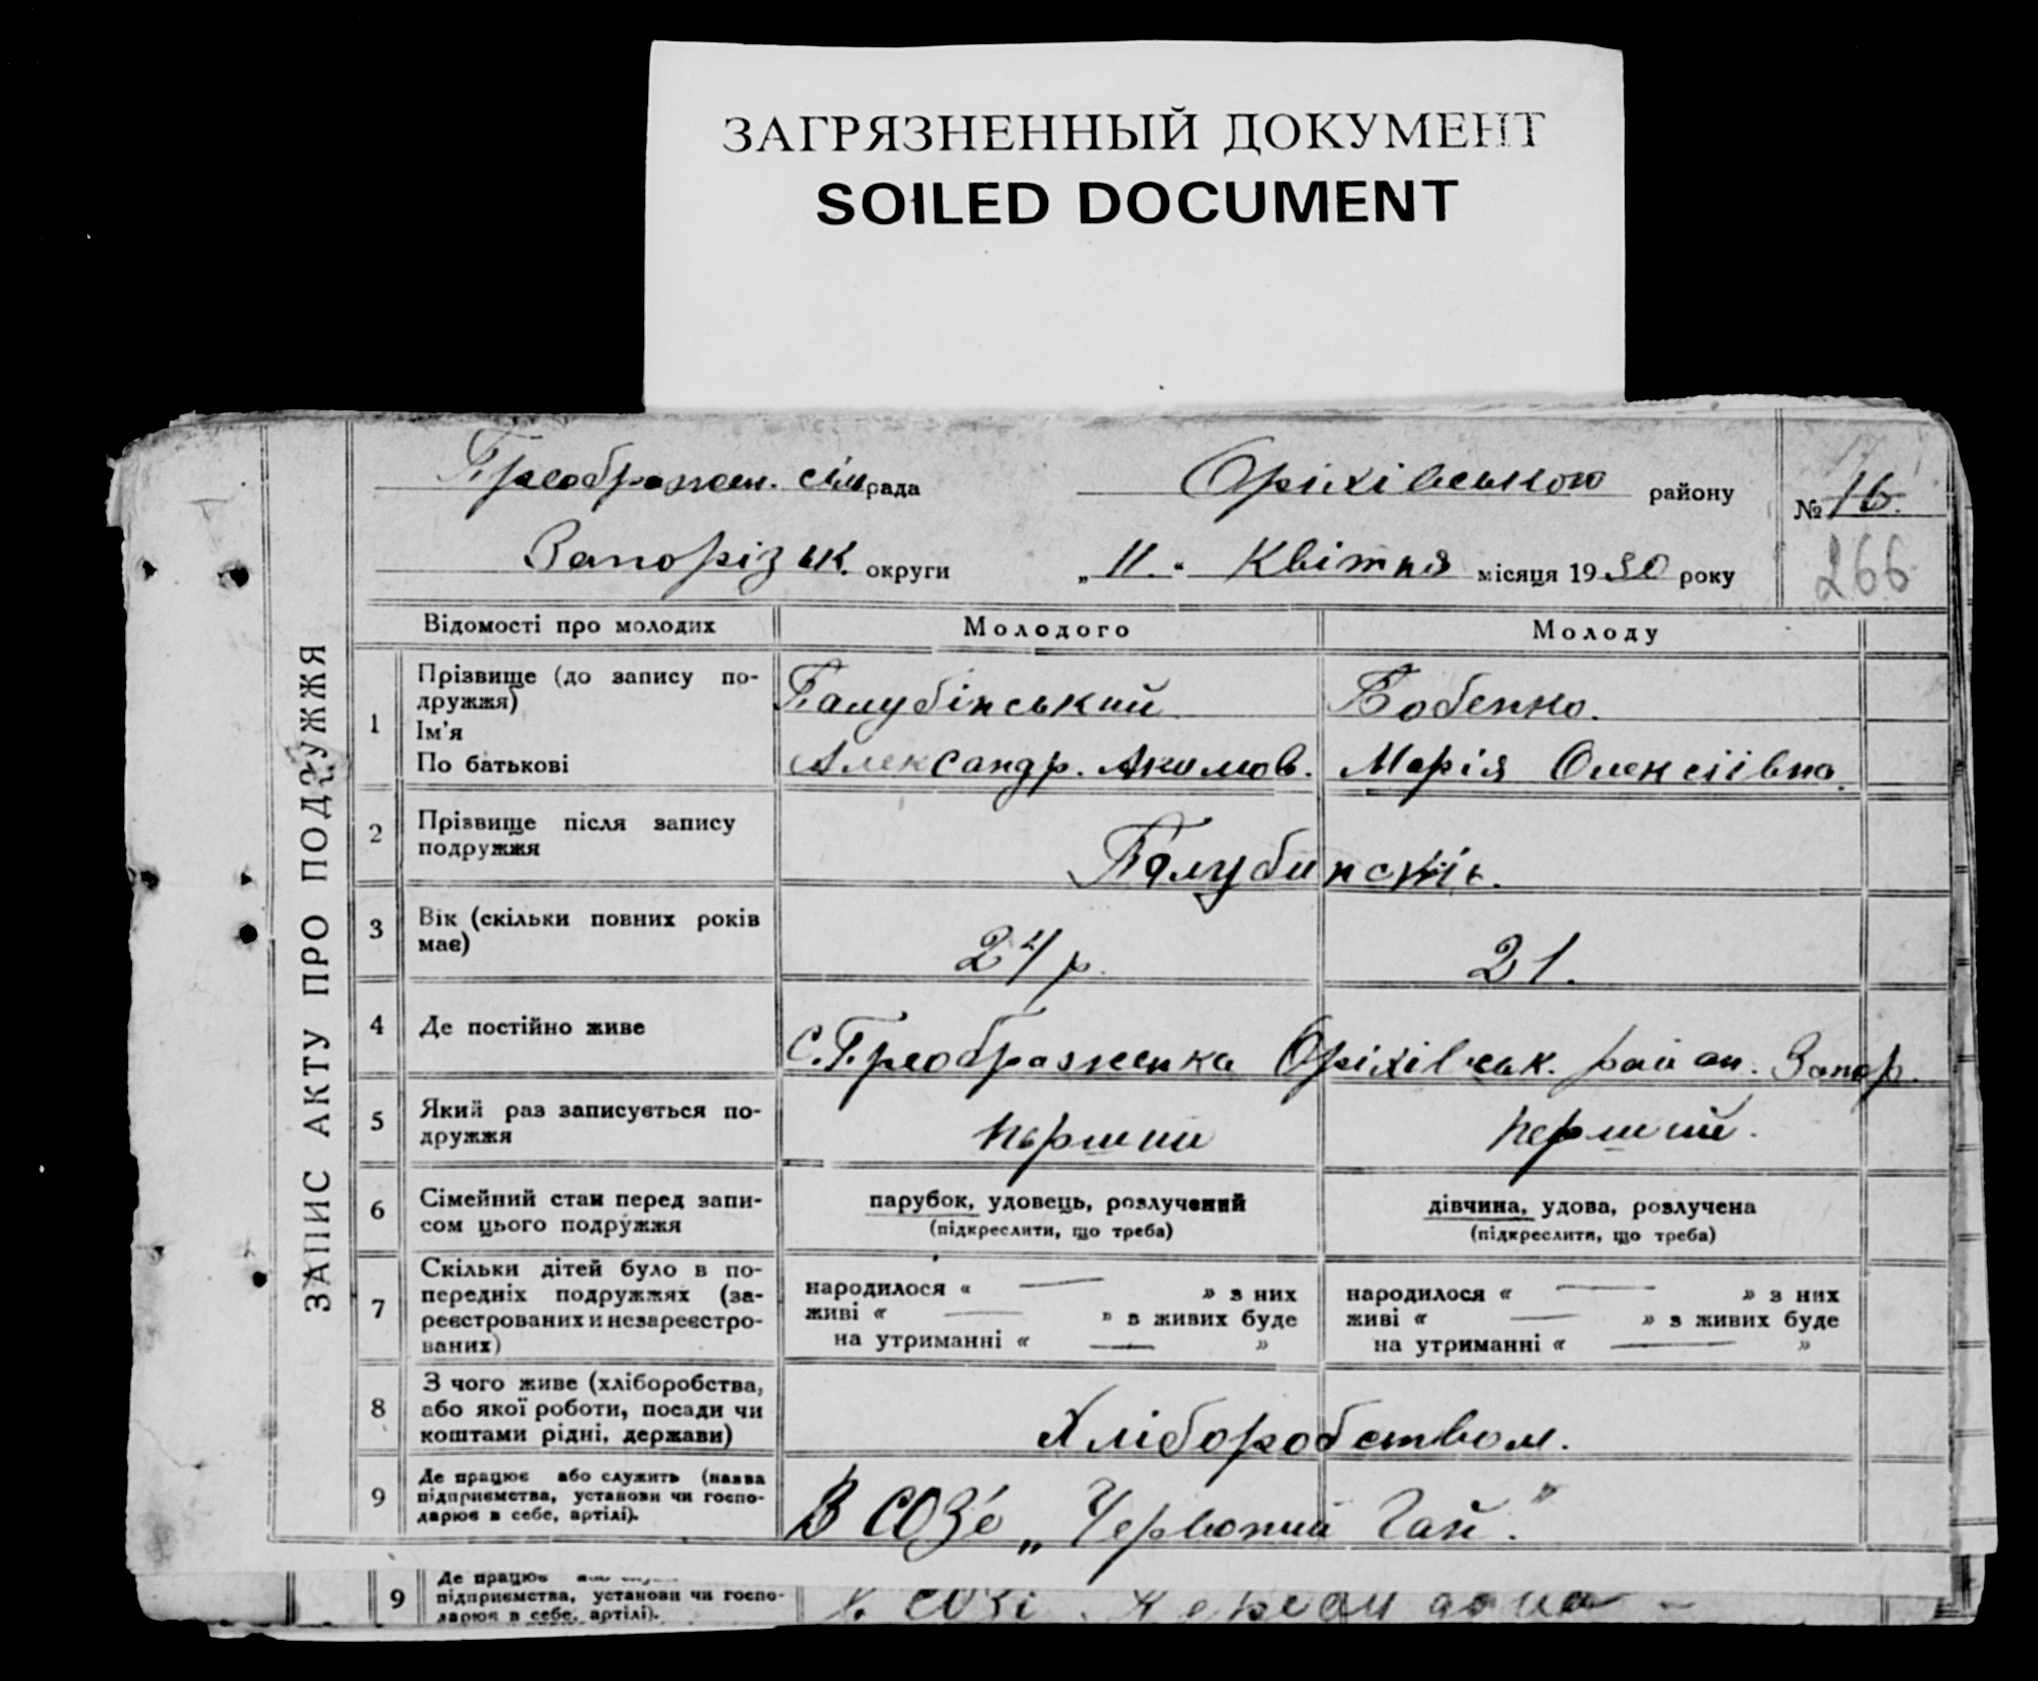 ЗАГРЯЗНЕННЫЙ ДОКУМЕНТ
SOILED DOCUMENT
Преображен. сіль рада Оріхівською району № 16.
Запорізьк. округи „ 11. “ Квітня місяця 1930 року
266
ЗАПИС АКТУ ПРО ПОДРУЖЖЯ
Відомості про молодих Молодого Молоду
1 Прізвище (до запису по-
дружжя) Галубінський Бобенко.
Ім'я
По батькові Александр. Акимов. Марія Олексіївна
2 Прізвище після запису
подружжя Галубинські.
3 Вік (скільки повних років
має) 24 р. 21.
4 Де постійно живе с. Преображенка Оріхівськ. район. Запор.
5 Який раз записується по-
дружжя перший перший.
6 Сімейний стан перед запи-
сом цього подружжя
парубок, удовець, розлучений дівчина, удова, розлучена
(підкреслити, що треба) (підкреслити, що треба)
7 Скільки дітей було в по-
передніх подружжях (за-
реєстрованих и незареєстро-
ваних)
народилося « — » з них народилося « — » з них
живі « — » з живих буде живі « — » з живих буде
на утриманні « — » на утриманні « — »
8 З чого живе (хліборобства,
або якої роботи, посади чи
коштами рідні, держави) Хліборобством.
9 Де працює або служить (назва
підприємства, установи чи госпо-
дарює в себе, артілі). В СОЗ'е „Червоний Гай."
9 Де працює
підприємства, установи чи госпо-
дарює в себе, артілі).